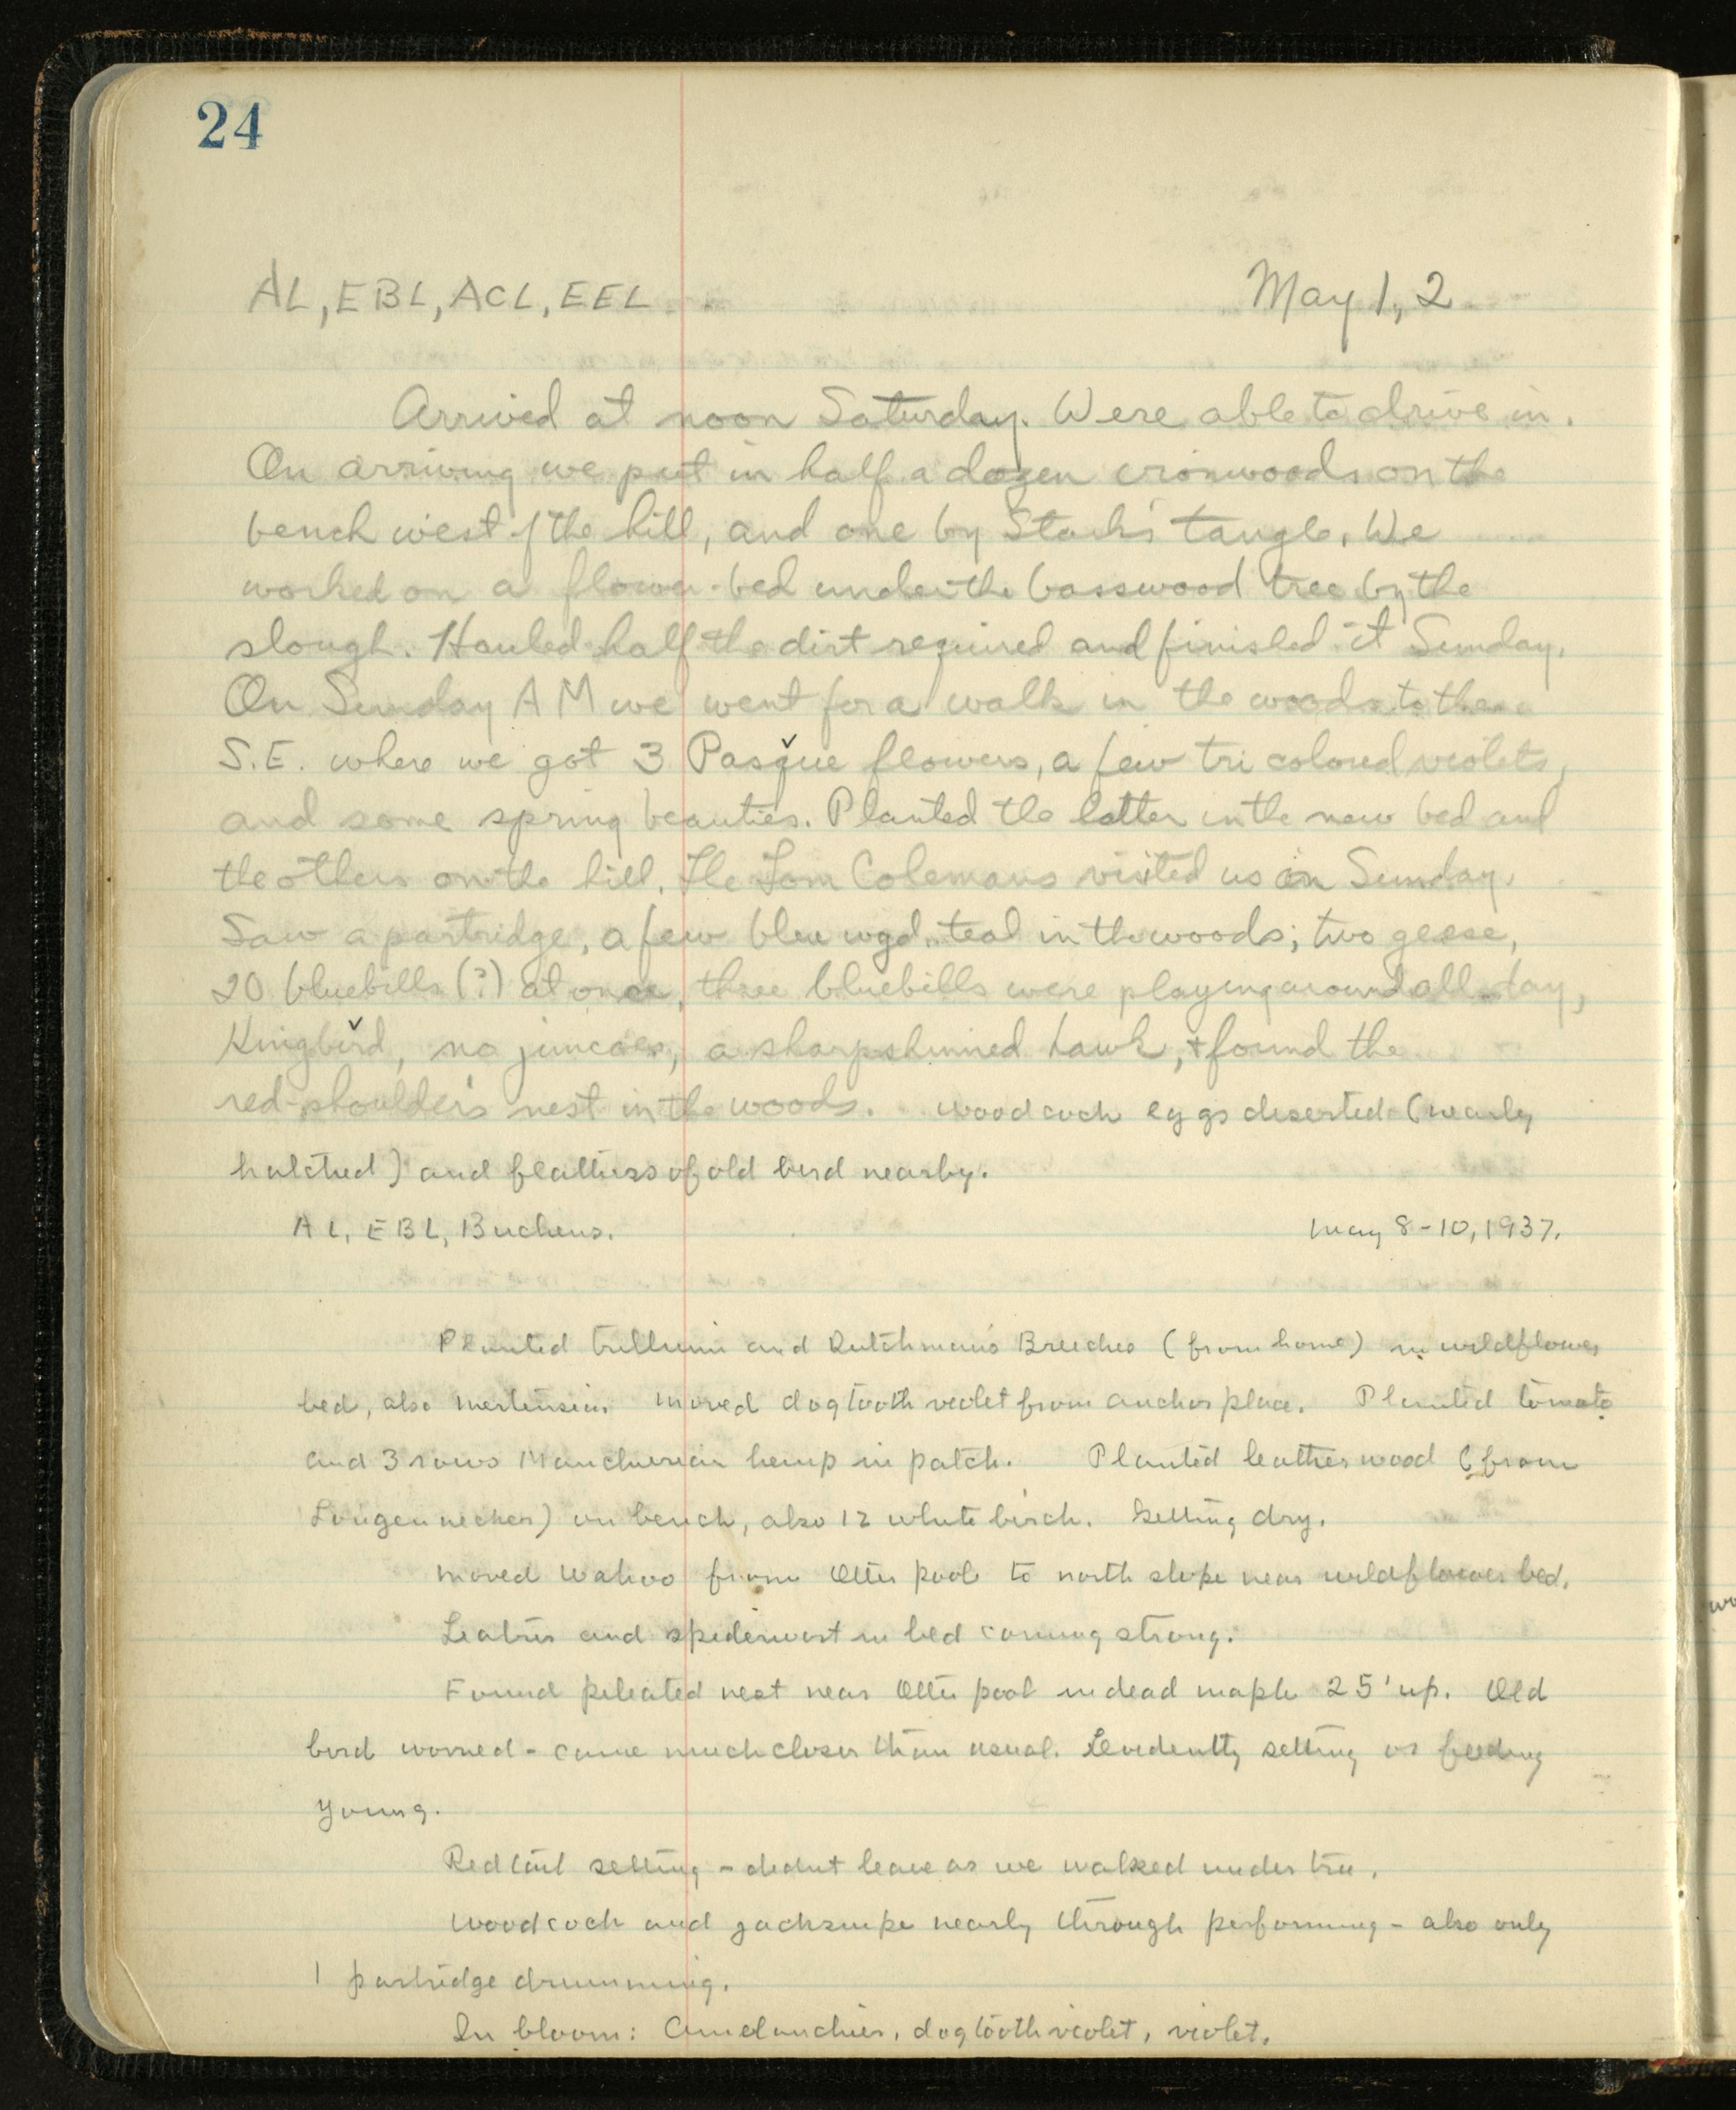 24
AL, EBL, ACL, EEL May 1, 2
Arrived at noon Saturday. Were able to drive in.
On arriving we put in half a dozen ironwoods on the
bench west of the hill, and one by Starks' tangle. We
worked on a flower-bed under the basswood tree by the
slough. Hauled half the dirt required and finished it Sunday.
On Sunday AM we went for a walk in the woods to the
S.E. where we got 3 Pasque flowers, a few tri colored violets,
and some spring beauties. Planted the latter in the new bed and
the others on the hill. The Tom Colemans visited us on Sunday.
Saw a partridge, a few blue wgd. teal in the woods; two geese,
20 bluebills (?) at once, three bluebills were playing around all day,
Kingbird, no juncoes, a sharpshinned hawk, + found the
red-shoulder's nest in the woods. Woodcock eggs deserted (nearly
hatched) and feathers of old bird nearby.
AL, EBL, Buchens. May 8-10, 1937.
Planted trillium and Dutchman's Breeches (from home) in wildflower
bed, also mertensia. Moved dogtooth violet from anchor place. Planted tomato
and 3 rows Manchurian hemp in patch. Planted leatherwood (from
Longenecker) on bench, also 12 white birch. Getting dry.
Moved Wahoo from Otter pool to north slope near wildflower bed.
Liatris and spiderwort in bed coming strong.
Found pileated nest near Otter pool in dead maple 25' up. Old
bird worried - came much closer than usual. Evidently setting or feeding
young.
Redtail setting - didnt leave as we walked under tree.
Woodcock and jacksnipe nearly through performing - also only
1 partridge drumming.
In bloom: Amelanchier, dogtooth violet, violet.